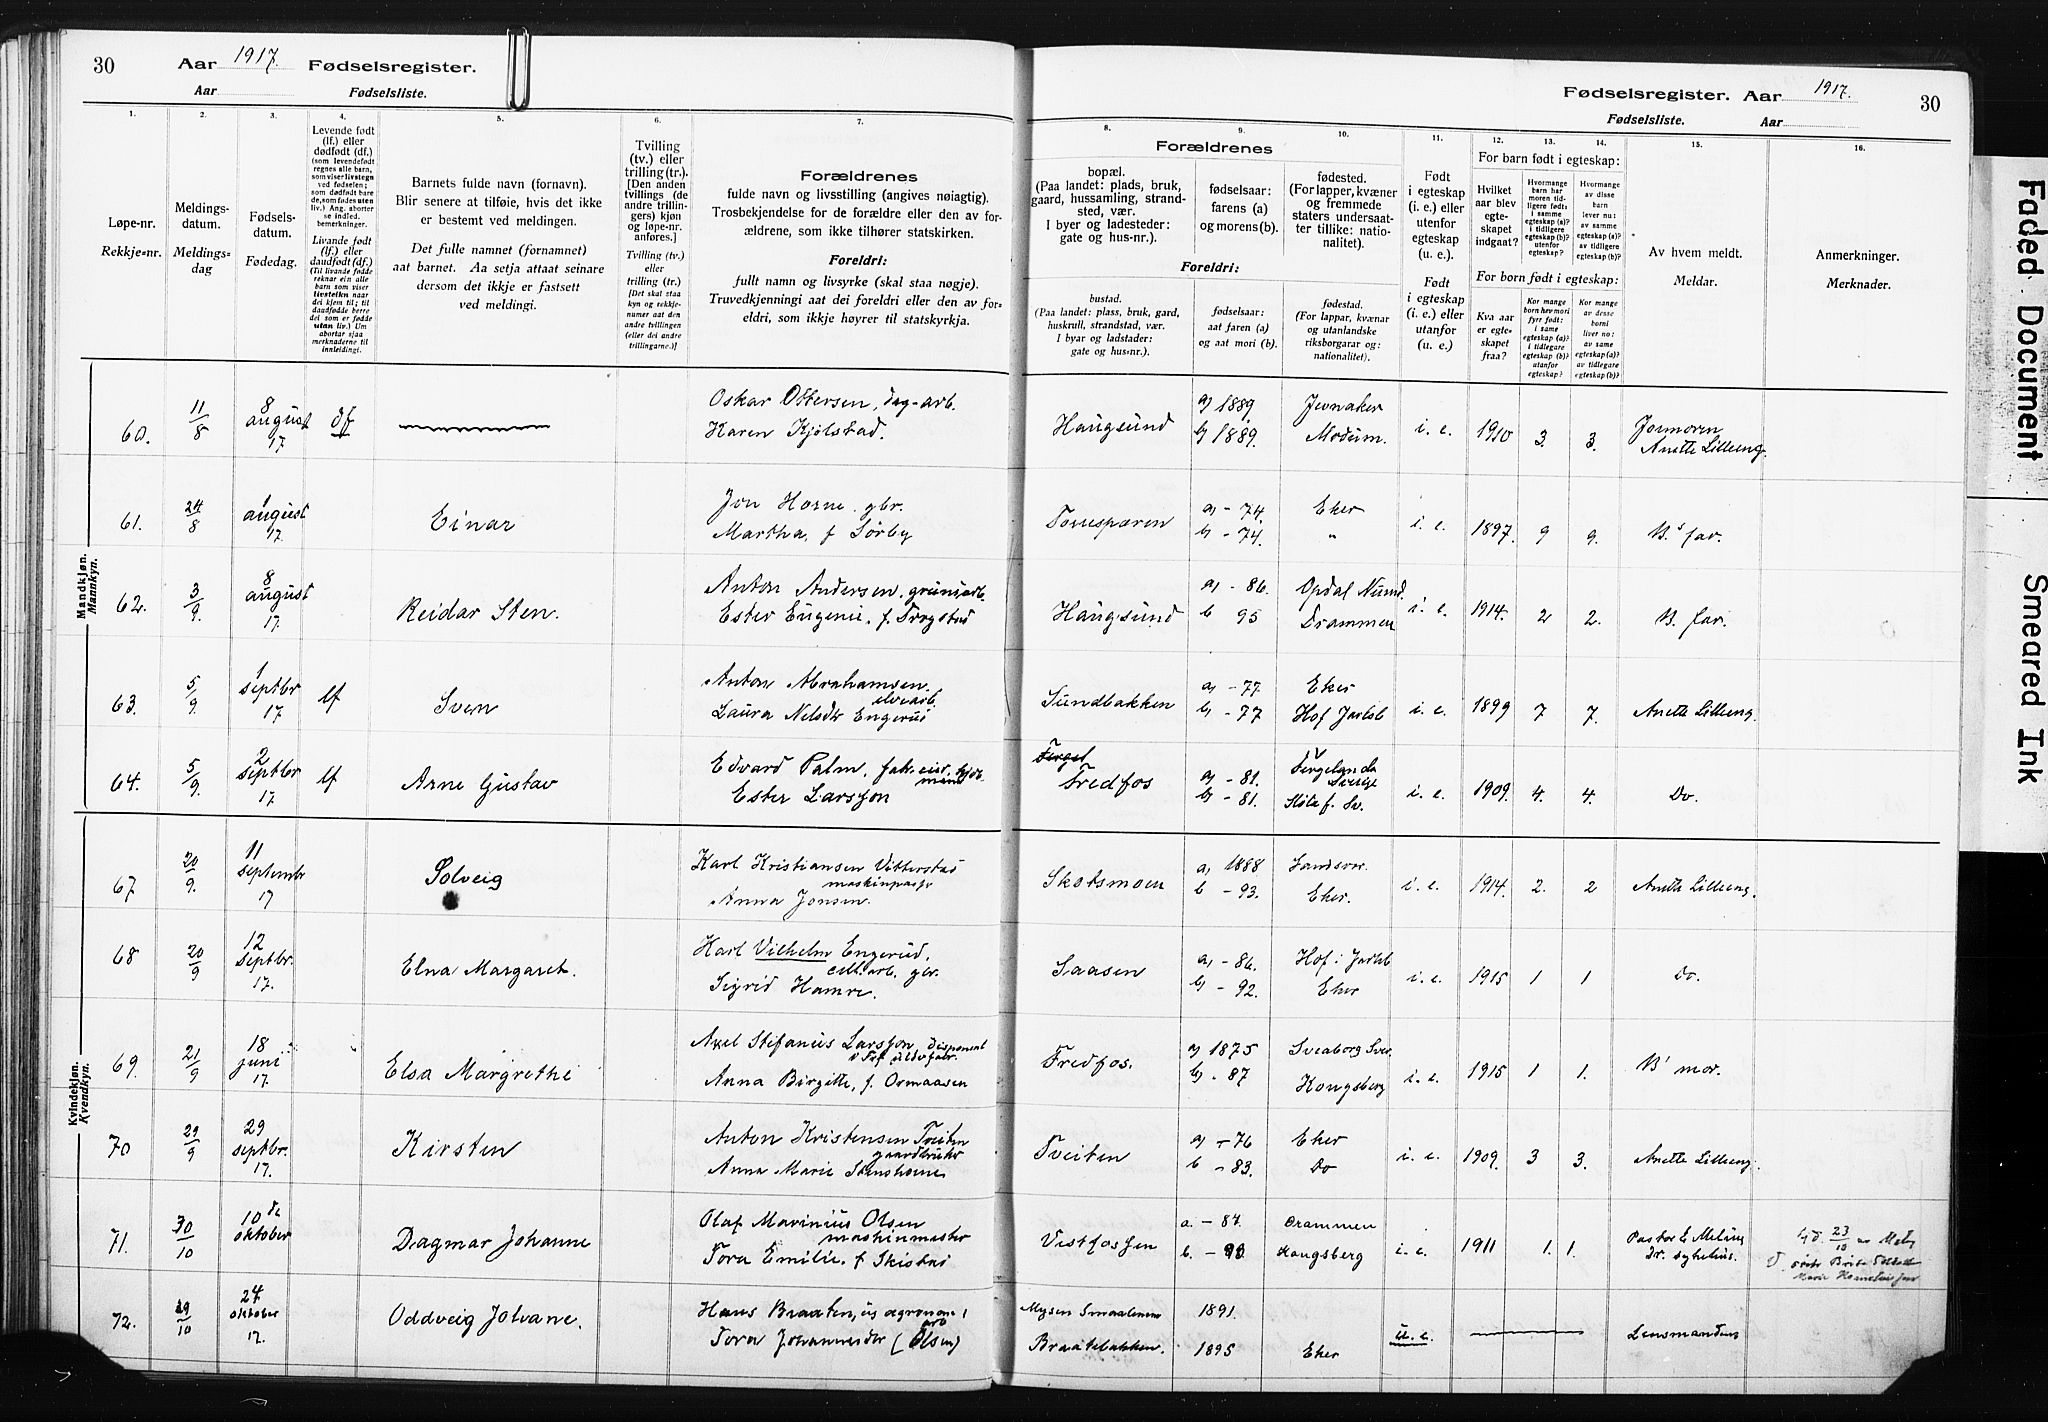 30
Aar 1917.
Aar
Fødselsregister.
Fødselsliste.
Fødselsregister. Aar 1917.
Fødselsliste. Aar
30
1. 2. 3. 4. 5. 6. 7. 8. 9. 10. 11. 12. 13. 14. 15. 16.
Løpe-nr.
Rekkje-nr.
Meldings-
datum.
Meldings-
dag
Fødsels-
datum.
Fødedag.
Levende født
(lf.) eller
dødfødt (df.)
(som levendefødt
regnes alle barn,
som viser livstegn
ved fødselen;
som dødfødt bare
de, som fødes uten
liv.) Ang. aborter
se indled.
bemerkninger.
Livande født
(lf.) eller
daudfødt (df.)
(Til livande fødde
reknar ein alle
barn som viser
livsteikn naar
dei kjem til; til
daudfødde berre
dei som er fødde
utan liv.) Um
abortar sjaa
merknaderne til
innleidingi.
Barnets fulde navn (fornavn).
Blir senere at tilføie, hvis det ikke
er bestemt ved meldingen.
Det fulle namnet (fornamnet)
aat barnet. Aa setja attaat seinare
dersom det ikkje er fastsett
ved meldingi.
Tvilling
(tv.) eller
trilling (tr.).
[Den anden
tvillings (de
andre trillin-
gers) kjøn
og løpe-nr.
anføres.]
Tvilling (tv.)
eller
trilling (tr.)
[Det skal staa
kyn og rekkje-
numer aat den
andre tvillingen
(eller dei andre
trillingarne.)]
Forældrenes
fulde navn og livsstilling (angives nøiagtig).
Trosbekjendelse for de forældre eller den av for-
ældrene, som ikke tilhører statskirken.
Foreldri:
fullt namn og livsyrke (skal staa nøgje).
Truvedkjenningi aat dei foreldri eller den av for-
eldri, som ikkje høyrer til statskyrkja.
Forældrenes
bopæl.
(Paa landet: plads, bruk,
gaard, hussamling, strand-
sted, vær.
I byer og ladesteder:
gate og hus-nr.).
fødselsaar:
farens (a)
og morens (b).
fødested.
(For lapper, kvæner
og fremmede
staters undersaat-
ter tillike: natio-
nalitet).
Foreldri:
bustad.
(Paa landet: plass, bruk, gard,
huskrull, strandstad, vær.
I byar og ladstader:
gate og hus-nr.).
fødselsaar:
aat faren (a)
og aat mori (b).
fødestad.
(For lappar, kvænar
og utanlandske
riksborgarar og:
nationalitet).
Født
i egteskap
(i. e.) eller
utenfor
egteskap
(u. e.).
Født
i egteskap
(i. e.) eller
utanfor
egteskap
(u. e.)
For barn født i egteskap:
Hvilket
aar blev
egte-
skapet
indgaat?
Hvormange
barn har
moren tid-
ligere født:
i samme
egteskap (a)?
i tidligere
egteskap (b)?
utenfor
egteskap?
Hvormange
av disse
barn
lever nu:
av samme
egteskap (a)?
av tidligere
egteskap (b)?
For born født i egteskap:
Kva aar
er egte-
skapet
fraa?
Kor mange
born hev mori
fyrr født:
i same
egteskap (a)?
i tidlegare
egteskap (b)?
utanfor
egteskap?
Kor mange
av desse
borni
liver no:
av same
egteskap (a)?
av tidlegare
egteskap (b)?
Av hvem meldt.
Meldar.
Anmerkninger.
Merknader.
Mandkjøn.
Mannkyn.
60. 11/8 8 august 17 df
Oskar Ottersen, dag-arb.
Karen Kjølstad.
Haugsund a) 1889 b) 1889. Jevnaker Modum. i. e. 1910 3. 3. Jormoren Anette Lilleeng.
61. 24/8 1 august 17. Einar
Jon Horne gbr.
Martha, f Sørby
a) - 74. b) - 74. Eker " i. e. 1897. 9 9. B.s far.
62. 3/9. 8 august 17. Reidar Sten.
Anton Andersen,
Ester Eugenie, f. Trygstad
Haugsund a) - 86. b 95 Opdal Numd. Drammen i. e. 1914. 2 2. B. far.
63. 5/9. 1 septbr 17 lf Sven
Anton Abrahamsen. elvearb.
Laura Nelsdtr Engerud
Sundbakken a) - 77. b) - 77 Eker Hof Jarlsb i. e. 1899 7 7. Anette Lilleeng.
64. 5/9. 2 septbr 17 lf Arne Gustav
Edvard Palm,
Ester Larsson
Fredfos a) - 81. b) - 81. Sverige i. e. 1909. 4. 4. Do.
Kvindekjøn.
Kvendkyn.
67 20/9. 11 septembr 17 Solveig
Karl Kristiansen Vitterstad
maskinpasser
Anna Jonsen.
Skotsmoen a) 1888 b - 93. Sandsvær. Eker. i. e. 1914. 2. 2 Anette Lilleeng.
68 20/9 12 septbr. 17. Elna Margaret.
Karl Vilhelm Engerud,
cell. arb. gbr.
Sigrid Hamre.
Saasen a) - 86. b) - 92. Hof i Jarlsb Eker i. e. 1915 1 1 Do.
69. 21/9 18 juni 17. Elsa Margrethe
Axel Stefanus Larsson, disponent
Anna Birgitte, f. Ormaasen
Fredfos. a) 1875 b) - 87 Sveaborg Sver. Kongsberg i. e. 1915 1 1. B' mor.
70 29/9 29 septbr. 17. Kirsten
Anton Kristensen Tveiten
gaardbruker
Anna Marie
Tveiten a) - 76 b - 83. Eker Do i. e. 1909. 3 3. Anette Lilleeng.
71. 30/10 10de oktober Dagmar Johanne
Olaf Marinius Olsen
maskinmester
Tora Emilie f Skistad
Vestfossen a. - 84. b. - 90 Drammen Kongsberg i. e. 1911 1. 1.
72. 29/10 24. oktober 17. Oddveig Jovane.
Hans Braaten,
Tora Johannesdtr (Olsen)
Mysen Smaalenene 1891.
Braatebakken. 1895 Eker u. e. Lensmanden
Faded Document
Smeared Ink